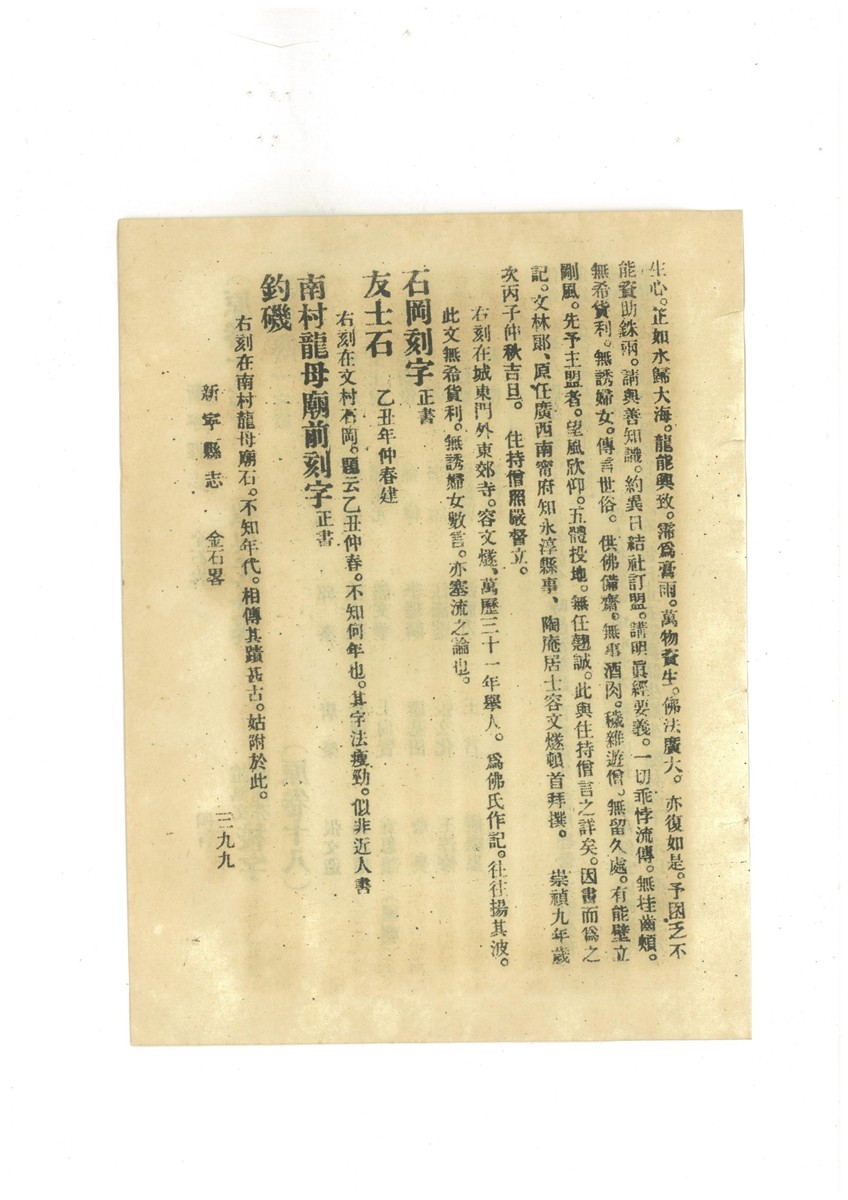 生心。正如水歸大海。龍能興致。霈爲膏雨。萬物資生。佛法廣大。亦復如是。予因乏不
能資助銖兩。請與善知識。約異日結社訂盟。講明眞經要義。一切乖悖流傳。無挂齒頰。
無希貨利。無誘婦女。傳言世俗。供佛備齋。無事酒肉。穢雜遊僧。無留久處。有能壁立
剛風。先予主盟者。望風欣仰。五體投地。無任翹誠。此與住持僧言之詳矣。因書而爲之
記。文林郞、原任廣西南甯府知永淳縣事、陶庵居士容文燧頓首拜撰。　崇禎九年歲
次丙子仲秋吉旦。　住持僧照嚴督立。
右刻在城東門外東郊寺。容文燧、萬歷三十一年舉人。爲佛氏作記。往往揚其波。
此文無希貨利。無誘婦女數言。亦塞流之論也。
石岡刻字 正書
友士石　乙丑年仲春建
右刻在文村石岡。題云乙丑仲春。不知何年也。其字法瘦勁。似非近人書
南村龍母廟前刻字 正書
釣磯
右刻在南村龍母廟石。不知年代。相傳其蹟甚古。姑附於此。
新寧縣志　金石畧　三九九